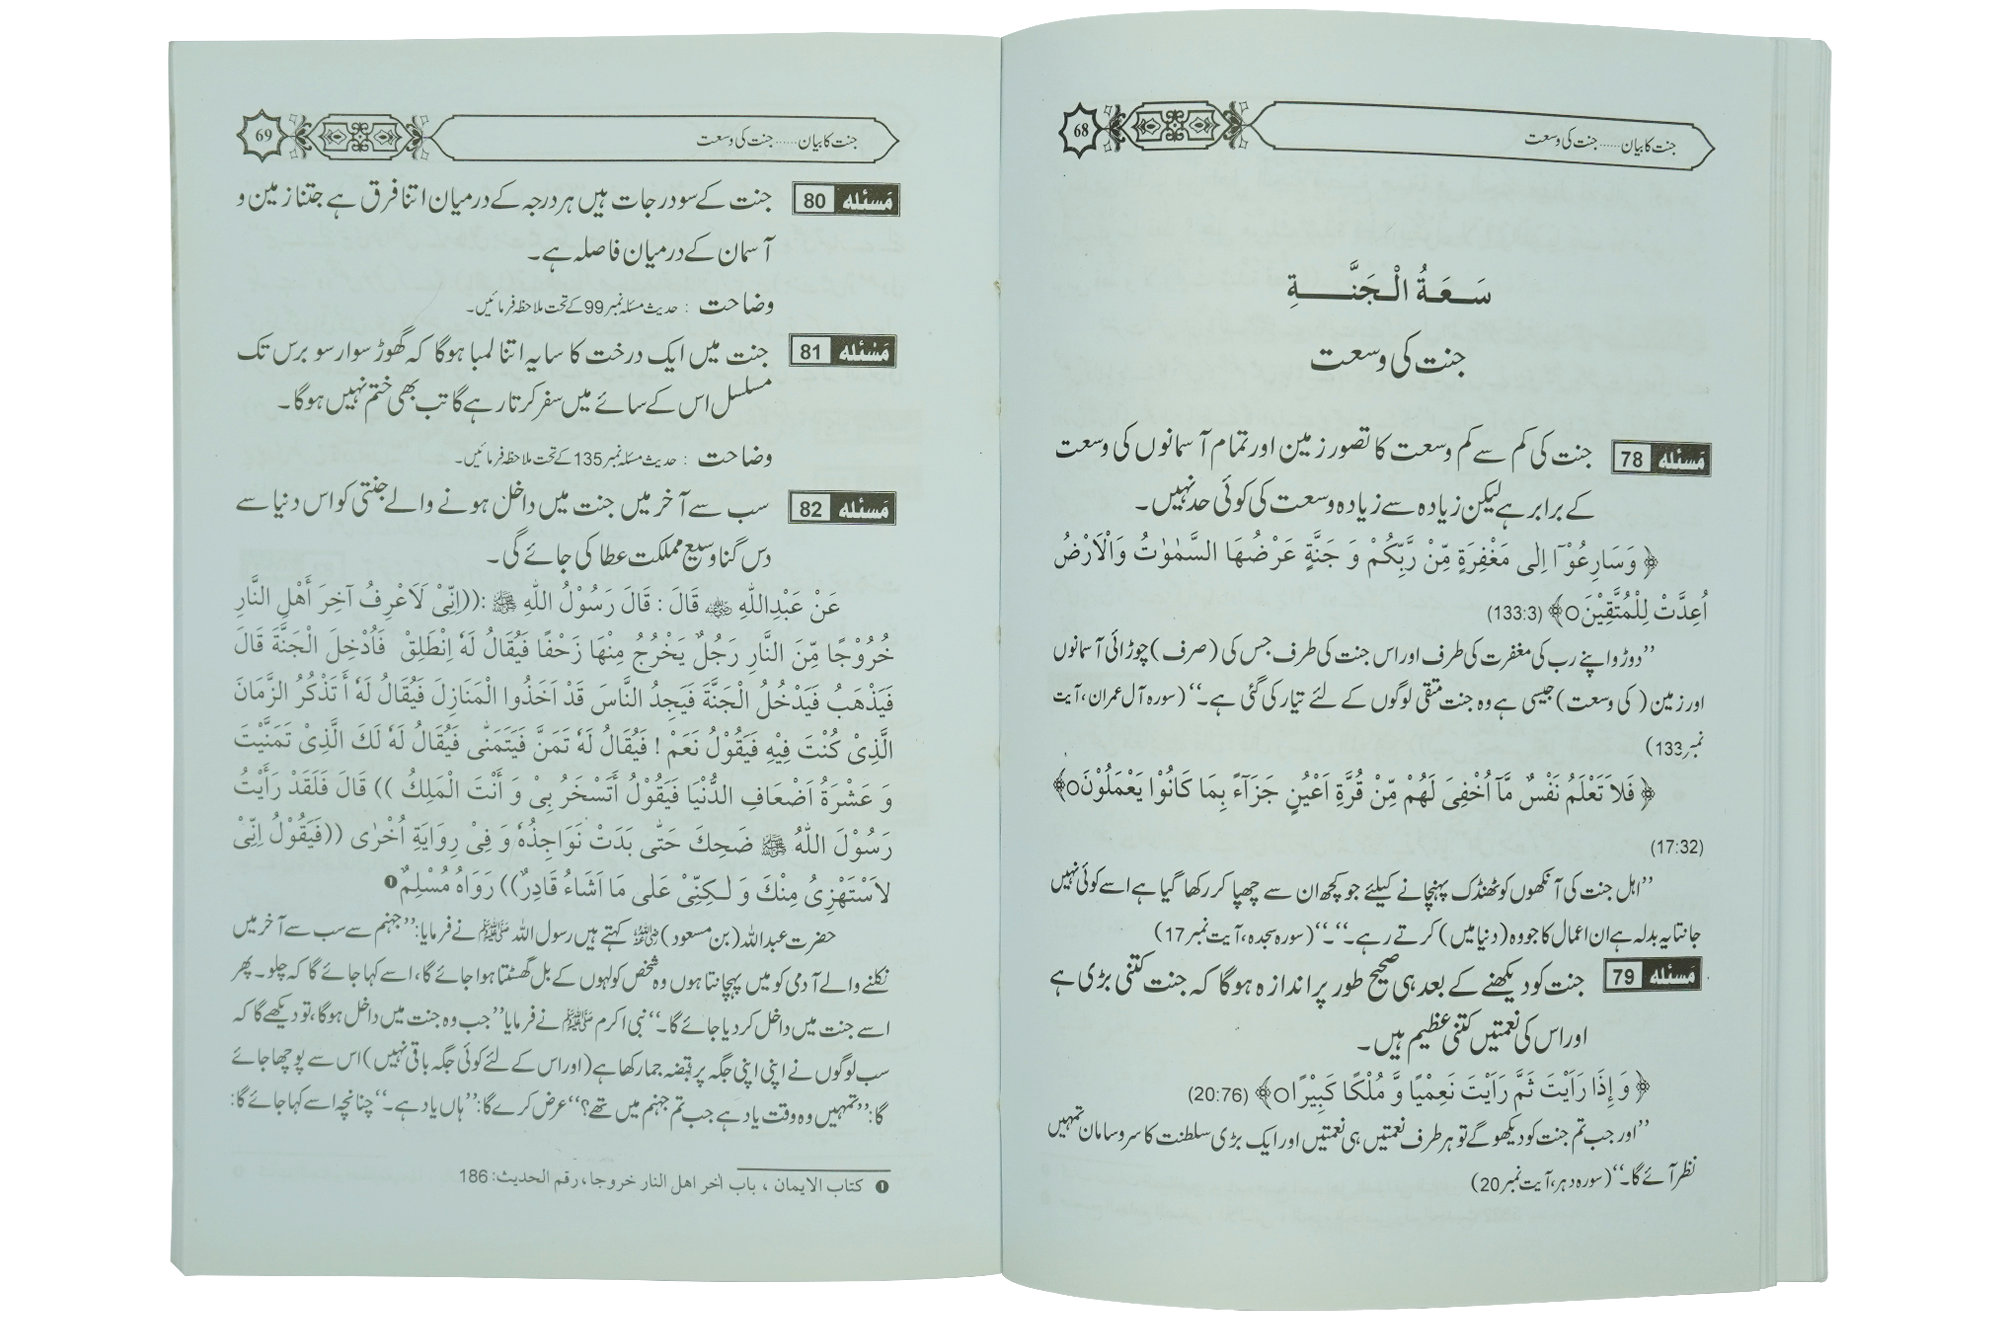 جنت کا بیان ...... جنت کی وسعت
68
سَعَةُ الْجَنَّةِ
جنت کی وسعت
مَسئله 78 جنت کی کم سے کم وسعت کا تصور زمین اور تمام آسمانوں کی وسعت
کے برابر ہے لیکن زیادہ سے زیادہ وسعت کی کوئی حد نہیں۔
﴿ وَسَارِعُوْٓا اِلٰى مَغْفِرَةٍ مِّنْ رَّبِّكُمْ وَ جَنَّةٍ عَرْضُهَا السَّمٰوٰتُ وَالْاَرْضُ
اُعِدَّتْ لِلْمُتَّقِيْنَ○﴾ (133:3)
’’دوڑو اپنے رب کی مغفرت کی طرف اور اس جنت کی طرف جس کی (صرف) چوڑائی آسمانوں
اور زمین (کی وسعت) جیسی ہے وہ جنت متقی لوگوں کے لئے تیار کی گئی ہے۔‘‘ (سورہ آل عمران، آیت
نمبر 133)
﴿ فَلاَ تَعْلَمُ نَفْسٌ مَّآ اُخْفِىَ لَهُمْ مِّنْ قُرَّةِ اَعْيُنٍ جَزَآءً بِمَا كَانُوْا يَعْمَلُوْنَ○﴾
(17:32)
’’اہل جنت کی آنکھوں کو ٹھنڈک پہنچانے کیلئے جو کچھ ان سے چھپا کر رکھا گیا ہے اسے کوئی نہیں
جانتا یہ بدلہ ہے ان اعمال کا جو وہ (دنیا میں) کرتے رہے۔‘‘۔‘‘ (سورہ سجدہ، آیت نمبر 17)
مَسئله 79 جنت کو دیکھنے کے بعد ہی صحیح طور پر اندازہ ہوگا کہ جنت کتنی بڑی ہے
اور اس کی نعمتیں کتنی عظیم ہیں۔
﴿ وَ اِذَا رَاَيْتَ ثَمَّ رَاَيْتَ نَعِمْيًا وَّ مُلْكًا كَبِيْرًا○﴾ (20:76)
’’اور جب تم جنت کو دیکھو گے تو ہر طرف نعمتیں ہی نعمتیں اور ایک بڑی سلطنت کا سروسامان تمہیں
نظر آئے گا۔‘‘ (سورہ دہر، آیت نمبر 20)
جنت کا بیان ...... جنت کی وسعت
69
مَسئله 80 جنت کے سو درجات ہیں ہر درجہ کے درمیان اتنا فرق ہے جتنا زمین و
آسمان کے درمیان فاصلہ ہے۔
وضاحت : حدیث مسئلہ نمبر 99 کے تحت ملاحظہ فرمائیں۔
مَسئله 81 جنت میں ایک درخت کا سایہ اتنا لمبا ہوگا کہ گھوڑ سوار سو برس تک
مسلسل اس کے سائے میں سفر کرتا رہے گا تب بھی ختم نہیں ہوگا۔
وضاحت : حدیث مسئلہ نمبر 135 کے تحت ملاحظہ فرمائیں۔
مَسئله 82 سب سے آخر میں جنت میں داخل ہونے والے جنتی کو اس دنیا سے
دس گنا وسیع مملکت عطا کی جائے گی۔
عَنْ عَبْدِاللهِ ؓ قَالَ : قَالَ رَسُوْلُ اللهِ ﷺ :((اِنِّىْ لَاَعْرِفُ آخِرَ أَهْلِ النَّارِ
خُرُوْجًا مِّنَ النَّارِ رَجُلٌ يَخْرُجُ مِنْهَا زَحْفًا فَيُقَالُ لَهٗ اِنْطَلِقْ فَاُدْخِلَ الْجَنَّةَ قَالَ
فَيَذْهَبُ فَيَدْخُلُ الْجَنَّةَ فَيَجِدُ النَّاسَ قَدْ اَخَذُوا الْمَنَازِلَ فَيُقَالُ لَهٗ أَتَذْكُرُ الزَّمَانَ
الَّذِىْ كُنْتَ فِيْهِ فَيَقُوْلُ نَعَمْ ! فَيُقَالُ لَهٗ تَمَنَّ فَيَتَمَنّٰى فَيُقَالُ لَهٗ لَكَ الَّذِىْ تَمَنَّيْتَ
وَ عَشْرَةُ اَضْعَافِ الدُّنْيَا فَيَقُوْلُ أَتَسْخَرُ بِىْ وَ أَنْتَ الْمَلِكُ )) قَالَ فَلَقَدْ رَأَيْتُ
رَسُوْلَ اللهِ ﷺ ضَحِكَ حَتّٰى بَدَتْ نَوَاجِذُهٗ وَ فِىْ رِوَايَةِ اُخْرٰى ((فَيَقُوْلُ اِنِّىْ
لاَسْتَهْزِئُ مِنْكَ وَ لٰكِنِّىْ عَلٰى مَا اَشَاءُ قَادِرٌ)) رَوَاهُ مُسْلِمٌ❶
حضرت عبداللہ (بن مسعود) ؓ کہتے ہیں رسول اللہ ﷺ نے فرمایا:’’جہنم سے سب سے آخر میں
نکلنے والے آدمی کو میں پہچانتا ہوں وہ شخص کولہوں کے بل گھسٹتا ہوا جائے گا، اسے کہا جائے گا کہ چلو۔ پھر
اسے جنت میں داخل کر دیا جائے گا۔‘‘ نبی اکرم ﷺ نے فرمایا’’جب وہ جنت میں داخل ہوگا، تو دیکھے گا کہ
سب لوگوں نے اپنی اپنی جگہ پر قبضہ جما رکھا ہے (اور اس کے لئے کوئی جگہ باقی نہیں) اس سے پوچھا جائے
گا:’’تمہیں وہ وقت یاد ہے جب تم جہنم میں تھے؟‘‘ عرض کرے گا:’’ہاں یاد ہے۔‘‘ چنانچہ اسے کہا جائے گا:
❶ كتاب الايمان ، باب آخر اهل النار خروجا، رقم الحديث: 186